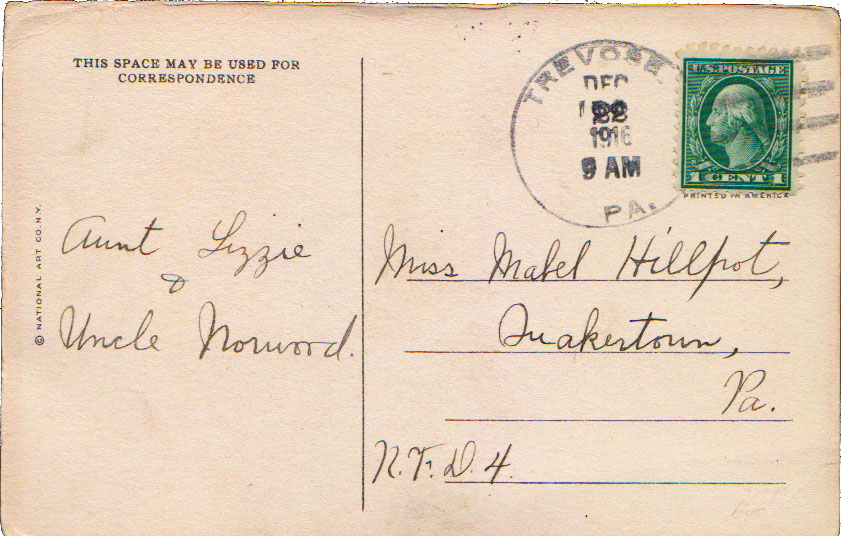 THIS SPACE MAY BE USED FOR
CORRESPONDENCE
© NATIONAL ART CO. N.Y.
Aunt Lizzie
&
Uncle Norwood.
TREVOSE,
DEC
22
1916
9 AM
PA.
U.S. POSTAGE
1 CENT 1
PRINTED IN AMERICA
Miss Mabel Hillpot,
Quakertown,
Pa.
R.F.D. 4.